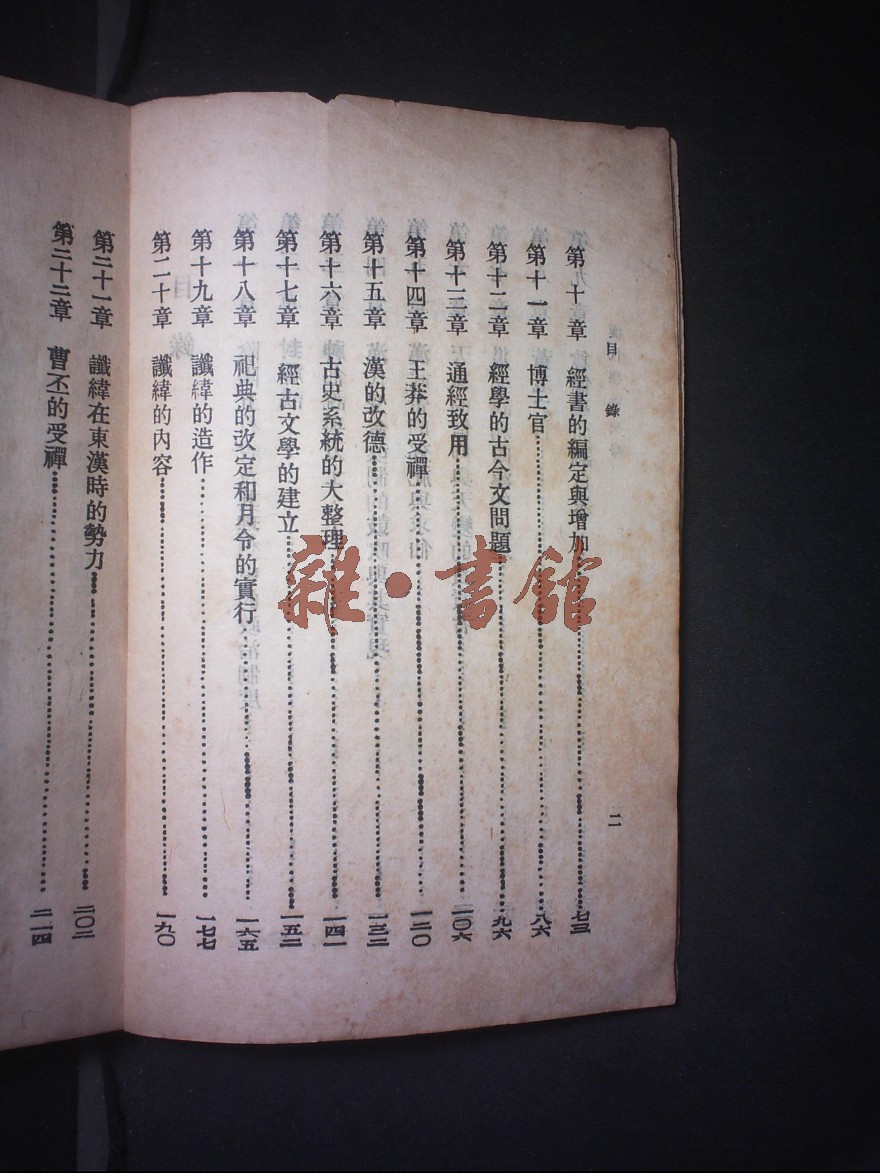 目錄
二
第十章 經書的編定與增加 七三
第十一章 博士官 八六
第十二章 經學的古今文問題 九六
第十三章 通經致用 一〇六
第十四章 王莽的受禪 一二〇
第十五章 漢的改德 一三二
第十六章 古史系統的大整理 一四一
第十七章 經古文學的建立 一五二
第十八章 祀典的改定和月令的實行 一六五
第十九章 讖緯的造作 一七七
第二十章 讖緯的內容 一九〇
第二十一章 讖緯在東漢時的勢力 二〇二
第二十二章 曹丕的受禪 二一四
雜·書館